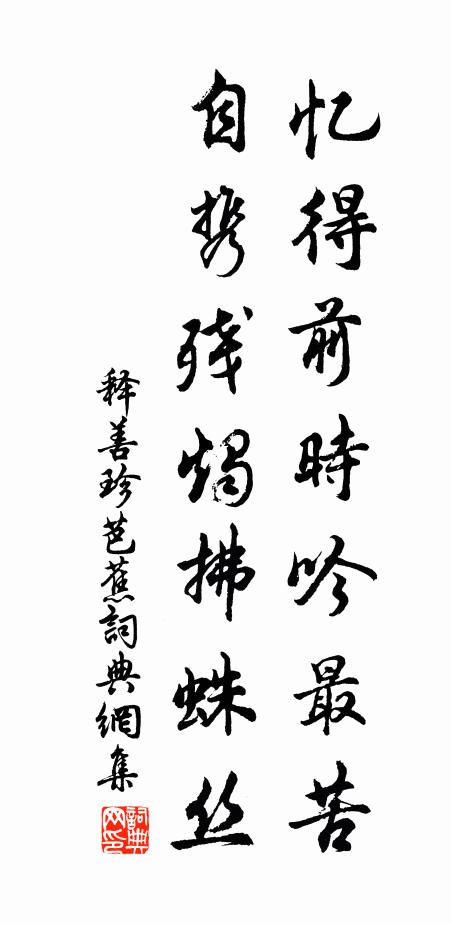 忆得前时吟最苦
自携残烛拂蛛丝
释善珍芭蕉词典网集
词典网印